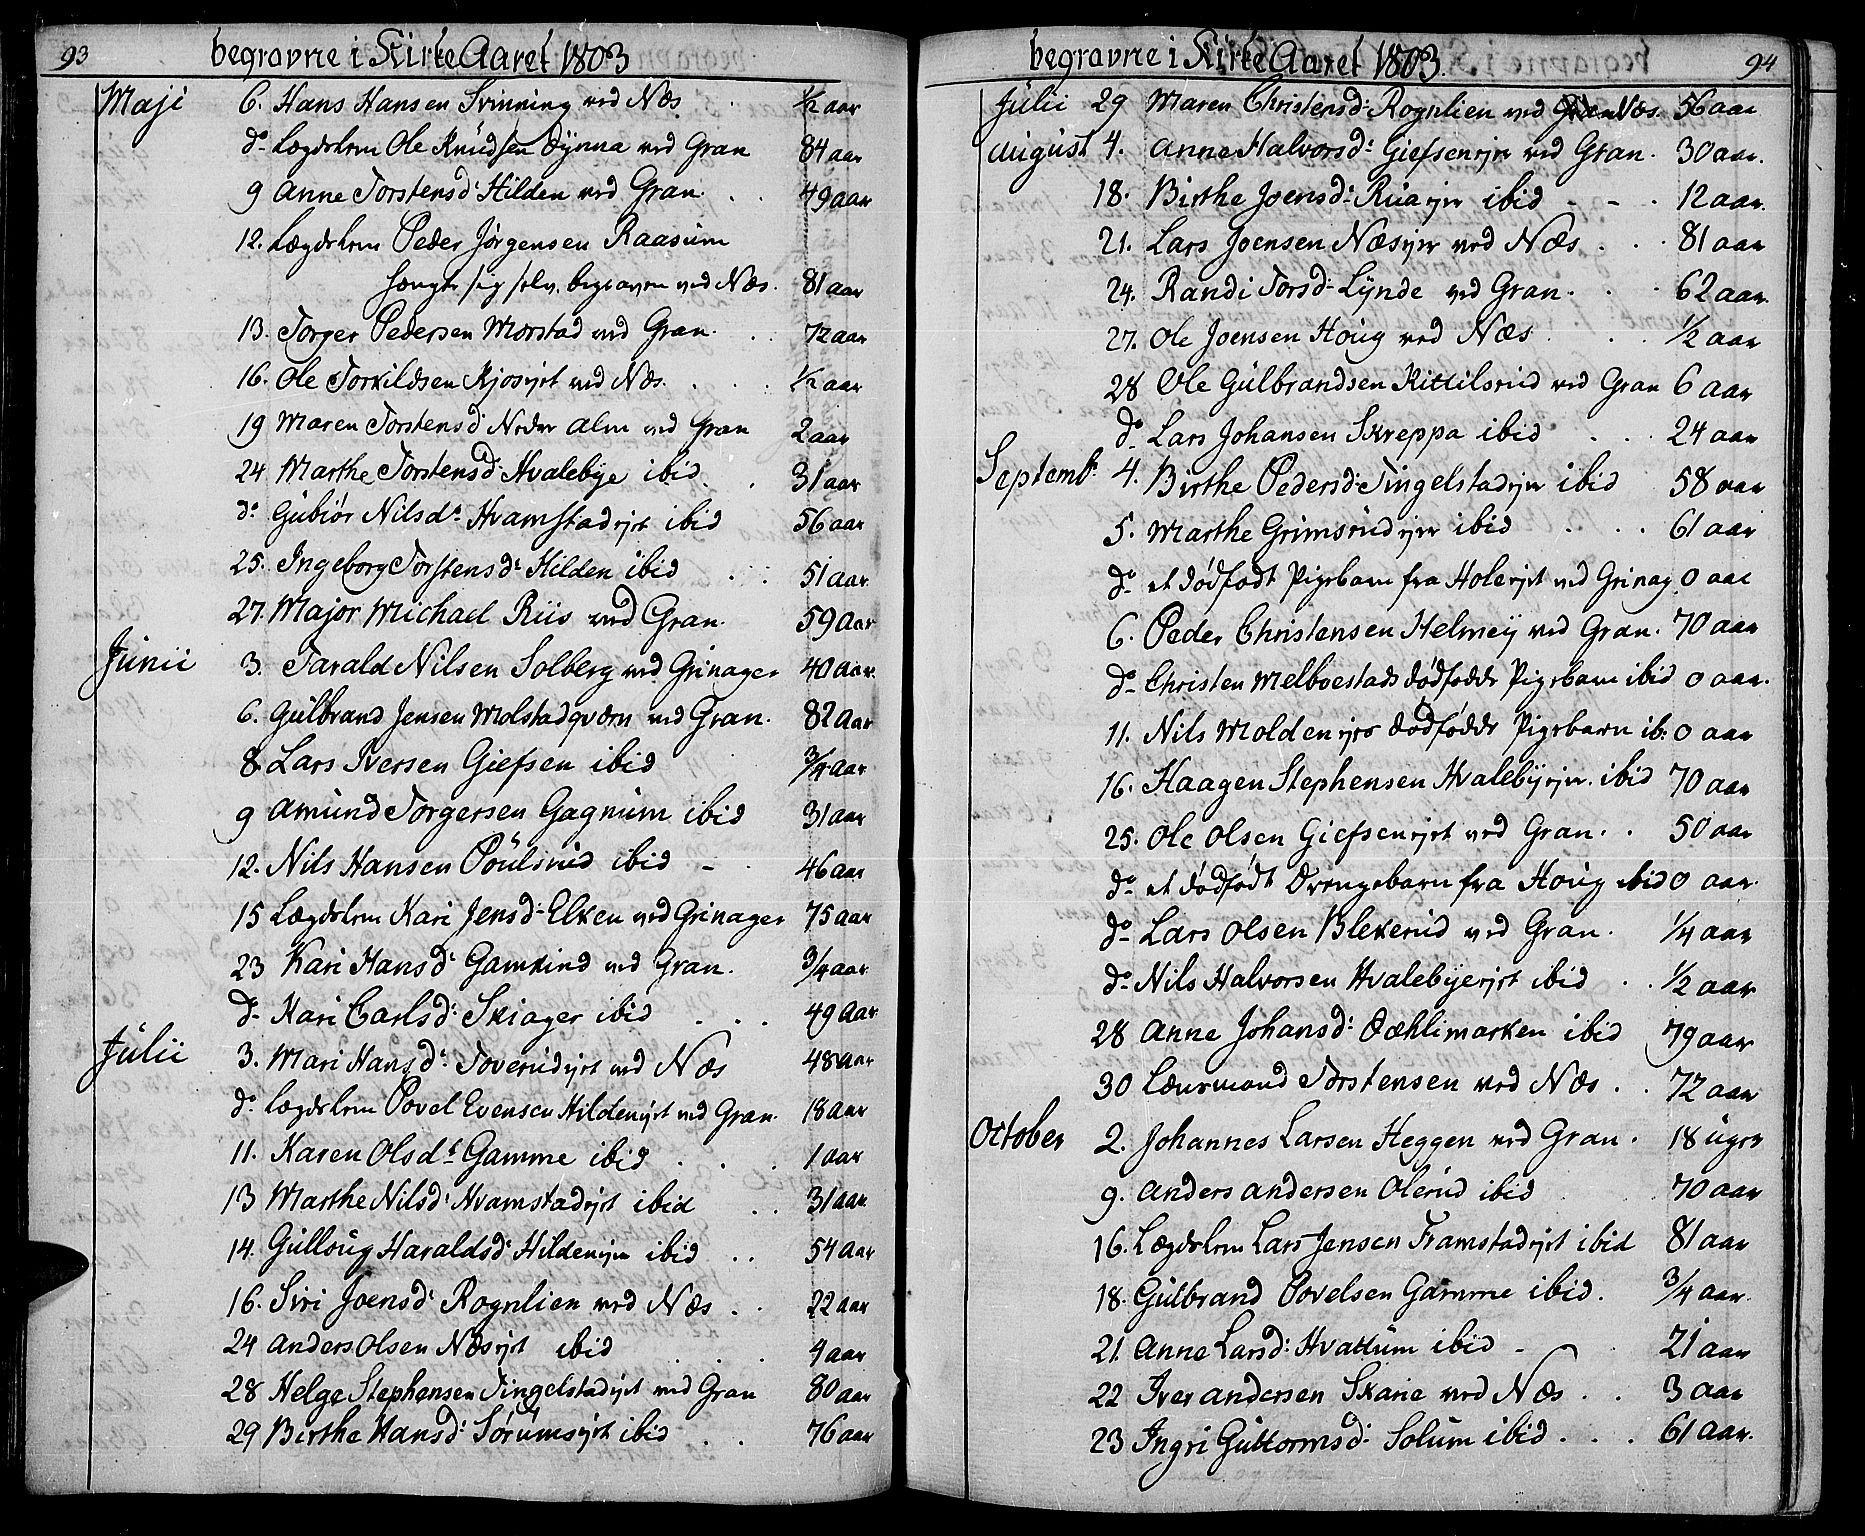 93
begravne i KirkeAaret 1803
Maji 6. Hans Hansen Svinning ved Næs. ½ aar
do Lægdslem Ole Knudsen Dynna ved Gran 84 aar
9 Anne Torstensd: Hilden ved Gran. 49 aar
12. Lægdslem Peder Jørgensen Raasum
hængte sig selv. begraven ved Næs. 81 aar
13. Torger Pedersen Morstad ved Gran. 72 aar
16. Ole Torkildsen Kjosejet ved Næs. ½ aar
19 Maren Torstensd Neder Alm ved Gran 2 aar
24 Marthe Torstensd: Hvalebye ibid. 31 aar
do Gubiør Nilsd: Hvamstadejet ibid 56 aar
25. Ingeborg Torstensd: Hilden ibid 51 aar
27. Major Michael Riis ved Gran. 59 Aar
Junii 3. Tarald Nilsen Solberg ved Grinager 40 aar.
6. Gulbrand Jensen Molstadqværn ved Gran. 82 Aar
8. Lars Iversen Giefsen ibid ¾ aar
9 Amund Torgersen Gagnum ibid 31 aar
12. Nils Hansen Poulsrud ibid 46 aar
15 Lægdslem Kari Jensd: Elken ved Grinager 75 aar
23 Kari Hansd: Gamkind ved Gran. ¾ aar
do Kari Carlsd: Skiager ibid 49 Aar
Julii 3. Mari Hansd: Toverudejet ved Næs 48 aar
do Lægdslem Povel Evensen Hildenejet ved Gran. 18 aar
11. Karen Olsd: Gamme ibid 1 aar
13 Marthe Nilsd: Hvamstadejet ibid 31 aar.
14. Gulloug Haraldsd: Hildenejer ibid 54 Aar
16. Siri Joensd: Rognlien ved Næs 22 aar
24 Anders Olsen Næsejet ibid 4 aar
28 Helge Stephensen Tingelstadejet ved Gran 80 aar
29 Birthe Hansd: Sørumsejet ibid 76 aar
94
begravne i Kirke Aaret 1803.
Julii 29 Maren Christensd: Rognlien ved Næs. 56 aar
August 4. Anne Halvorsd: Giefsenejer ved Gran. 30 aar.
18. Birthe Joensd: Ruaejer ibid 12 aar.
21. Lars Joensen Næsejer ved Næs 81 aar
24. Randi Torsd: Lynde ved Gran. 62 aar
27. Ole Joensen Houg ved Næs ½ aar
28 Ole Gulbrandsen Kittilsrud ved Gran 6 aar
do Lars Johansen Skreppa ibid 24 aar
Septembr. 4. Birthe Pedersd: Tingelstadejer ibid 58 aar
5. Marthe Grimsrudejer ibid 61 aar
do et dødfødt Pigebarn fra Holeejet ved Grinag. 0 aar
6. Peder Christensen Helmey ved Gran. 70 aar
do Christen Melboestads dødfødde Pigebarn ibid 0 aar.
11. Nils Moldenejes dødfødde Pigebarn ib: 0 aar
16. Haagen Stephensen Hvalebyejer. ibid 70 aar
25. Ole Olsen Giefsenejet ved Gran. 50 aar
do et dødfødt Drengebarn fra Houg ibid 0 aar.
do Lars Olsen Blekerud ved Gran. ¼ aar
do Nils Halvorsen Hvalebyeejet ibid ½ aar
28 Anne Johansd: Dæhlimarken ibid 79 aar
30 Lænsmand Torstensen ved Næs 72 aar
October 2. Johannes Larsen Heggen ved Gran. 18 uger
9. Anders Andersen Olerud ibid 70 aar
16. Lægdslem Lars Jensen Framstadejet ibid 81 aar
18. Gulbrand Povelsen Gamme ibid. ¾ aar.
21. Anne Larsd: Hvattum ibid 71 aar
22 Iver Andersen Skarie ved Næs 3 aar
23 Ingri Guttormsd: Solum ibid 61 aar.